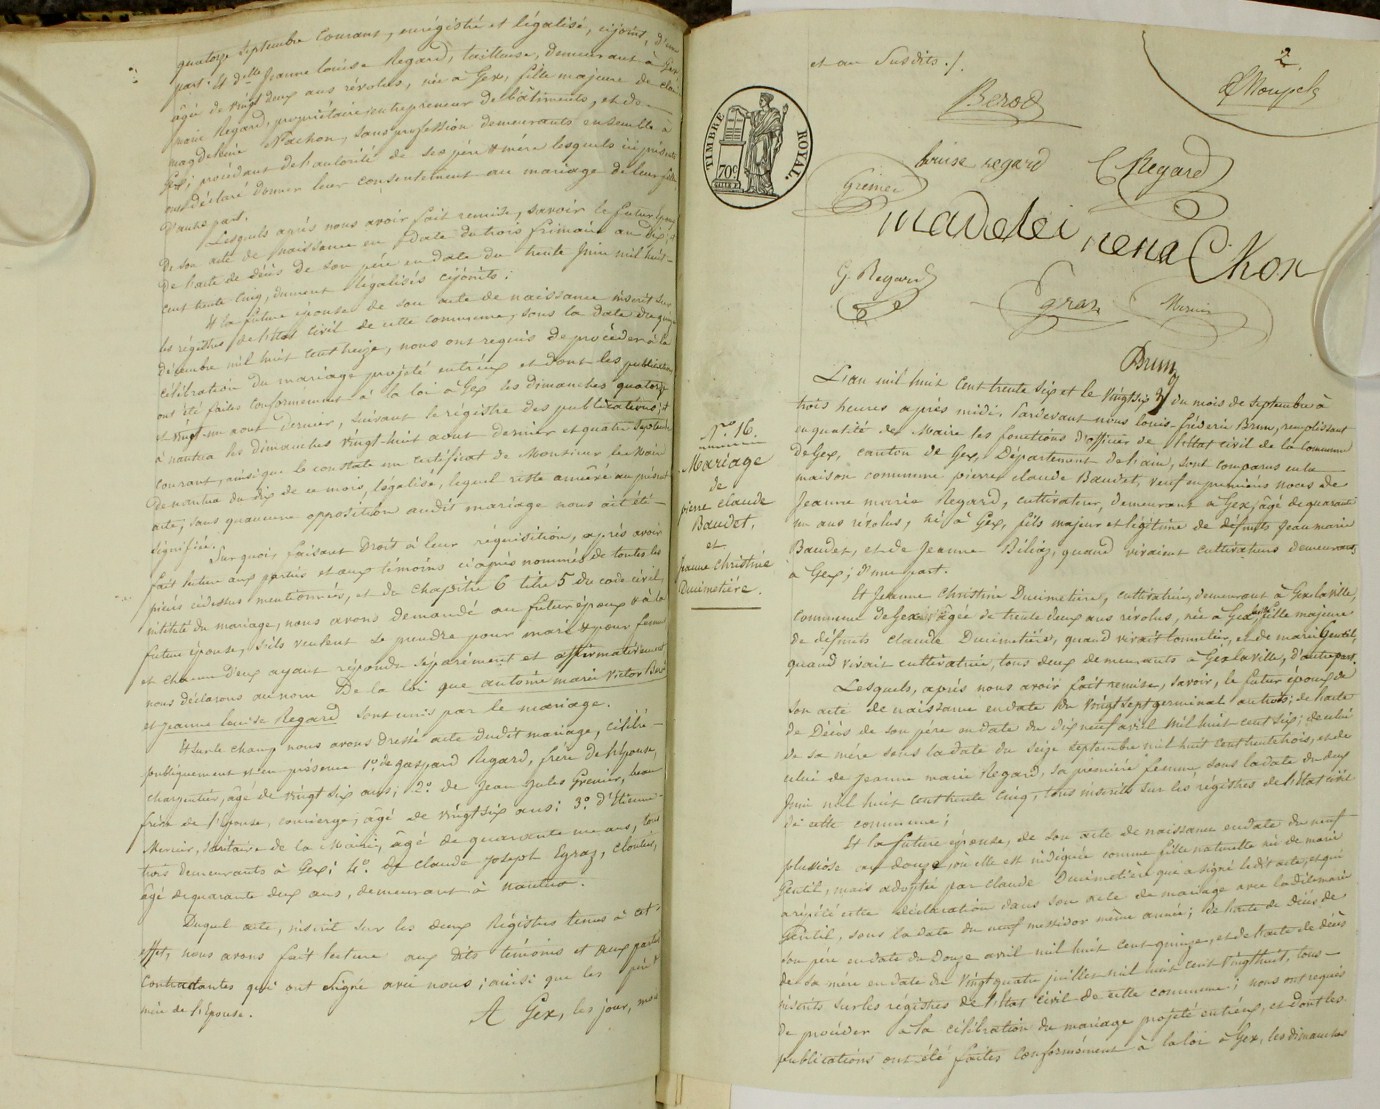 quatorze Septembre Courant, enrégistré et légalisé, cijoint, d'une
part. Et Delle Jeanne Louise Regard, tailleuse, demeurant à Gex,
âgée de vingt deux ans révolus, née à Gex, fille majeure de
Regard, propriétaire, entrepreneur de bâtiments, et de
magdeleine Nachon, sans profession demeurants ensemble à
Gex; procédant de l'autorité de ses père & mère lesquels ici présents
ont déclaré donner leur consentement au mariage de leur fille,
D'autre part.
Lesquels après nous avoir fait remise, savoir le futur époux
de son acte de Naissance en date du trois frimaire an dix;
De l'acte de décès de son père en date du trente Juin mil huit
cent trente Cinq, dument légalisés cijoints;
Et la future épouse de son acte de naissance inscrit sur
les régistres de l'état Civil de cette commune, sous la date du quinze
décembre mil huit cent treize, nous ont requis de procéder à la
célébration du mariage projeté entr'eux et dont les publications
ont été faites Conformément à la loi à Gex les dimanches quatorze
et vingt-un aout dernier, suivant le registre des publications; et
à nantua les dimanches vingt-huit aout dernier et quatre Septembre
courant, ainsi que le constate un certificat de Monsieur le Maire
De nantua du dix de ce mois, légalisé, lequel reste annexé au présent
acte, sans qu'aucune opposition audit mariage nous ait été
signifiée.
Sur quoi, faisant Droit à leur réquisition, après avoir
fait lecture aux parties et aux témoins ci après nommés de toutes les
pièces cidessus mentionnées, et du chapitre 6 titre 5 du code civil,
intitulé du mariage, nous avons demandé au futur époux & à la
future épouse, s'ils veulent se prendre pour mari & pour femme
et chacun d'eux ayant répondu séparément et affirmativement
nous déclarons au nom De la loi que antoine marie victor Bérod
et Jeanne Louise Regard sont unis par le mariage.
Et sur le champ nous avons dressé acte dudit mariage, célébré
publiquement et en présence 1º. de gaspard Regard, frère de l'épouse,
charpentier, âgé de vingt six ans; 2º. de Jean Jules Grenier, beau
frère de l'épouse, concierge, âgé de vingt six ans; 3º. d'Etienne
Mercier, Secrétaire de la Mairie, âgé de quarante un ans, tous
trois demeurants à Gex; 4º. de Claude Joseph Egraz, cloutier,
âgé de quarante deux ans, demeurant à nantua.
Duquel acte, inscrit sur les deux Régistres tenus à cet
effet, nous avons fait lecture aux dits témoins et aux parties
Contractantes qui ont Signé avec nous, ainsi que les père &
mère de l'épouse.
A Gex, les jour, mois
et an Susdits ./.
2
Berod
louise regard
C Regard
Grenier
Madelei nena Chon
G. Regard
Egraz
Mercier
Brun
TIMBRE ROYAL.
70c
Nº. 16.
Mariage
de
pierre claude
Baudet,
et
Jeanne Christine
Ducimetière.
L'an mil huit Cent trente Six et le vingt six du mois de Septembre à
trois heures après midi. Pardevant nous Louis frédéric Brun, remplissant
en qualité de Maire les fonctions d'officier de l'état civil de la commune
de Gex, canton de Gex, Département de l'ain, sont comparus en la
maison commune pierre claude Baudet, veuf en premières noces de
Jeanne marie Regard, cultivateur, demeurant à Gex, âgé de quarante
un ans révolus, né à Gex, fils majeur et légitime de défunts Jean marie
Baudet, et de Jeanne Biliaz, quand vivaient cultivateurs demeurans
à Gex; d'une part.
Et Jeanne Christine Ducimetière, cultivatrice, demeurant à Gex la ville,
commune de Gex, âgée de trente deux ans révolus, née à Gex, fille majeure
de défunts claude Ducimetière, quand vivait tonnelier, et de marie Gentil,
quand vivait cultivatrice, tous deux demeurants à Gex la ville, d'autre part.
Lesquels, après nous avoir fait remise, savoir, le futur époux de
son acte de naissance en date du vingt sept germinal an trois; de l'acte
de Décès de son père en date du dix neuf avril mil huit cent six; de celui
de sa mère sous la date du Seize Septembre mil huit cent trente trois, et de
celui de Jeanne marie Regard, sa première femme, sous la date du deux
Juin mil huit cent trente Cinq, tous inscrits sur les régistres de l'état civil
de cette commune;
Et la future épouse, de son acte de naissance en date du neuf
pluviose an douze, ou elle est indiquée comme fille naturelle née de marie
Gentil, mais adoptée par Claude Ducimetière qui a signé ledit acte, et qui
a répété cette déclaration dans son acte de mariage avec ladite marie
Gentil, sous la date du neuf messidor même année; de l'acte de décès de
son père en date du Douze avril mil huit cent quinze, et de l'acte de décès
de sa mère en date du vingt quatre juillet mil huit cent vingt huit, tous
inscrits sur les régistres de l'état Civil de cette commune; nous ont requis
de procéder à la célébration du mariage projeté entr'eux, et dont les
publications ont été faites conformément à la loi à Gex, les dimanches